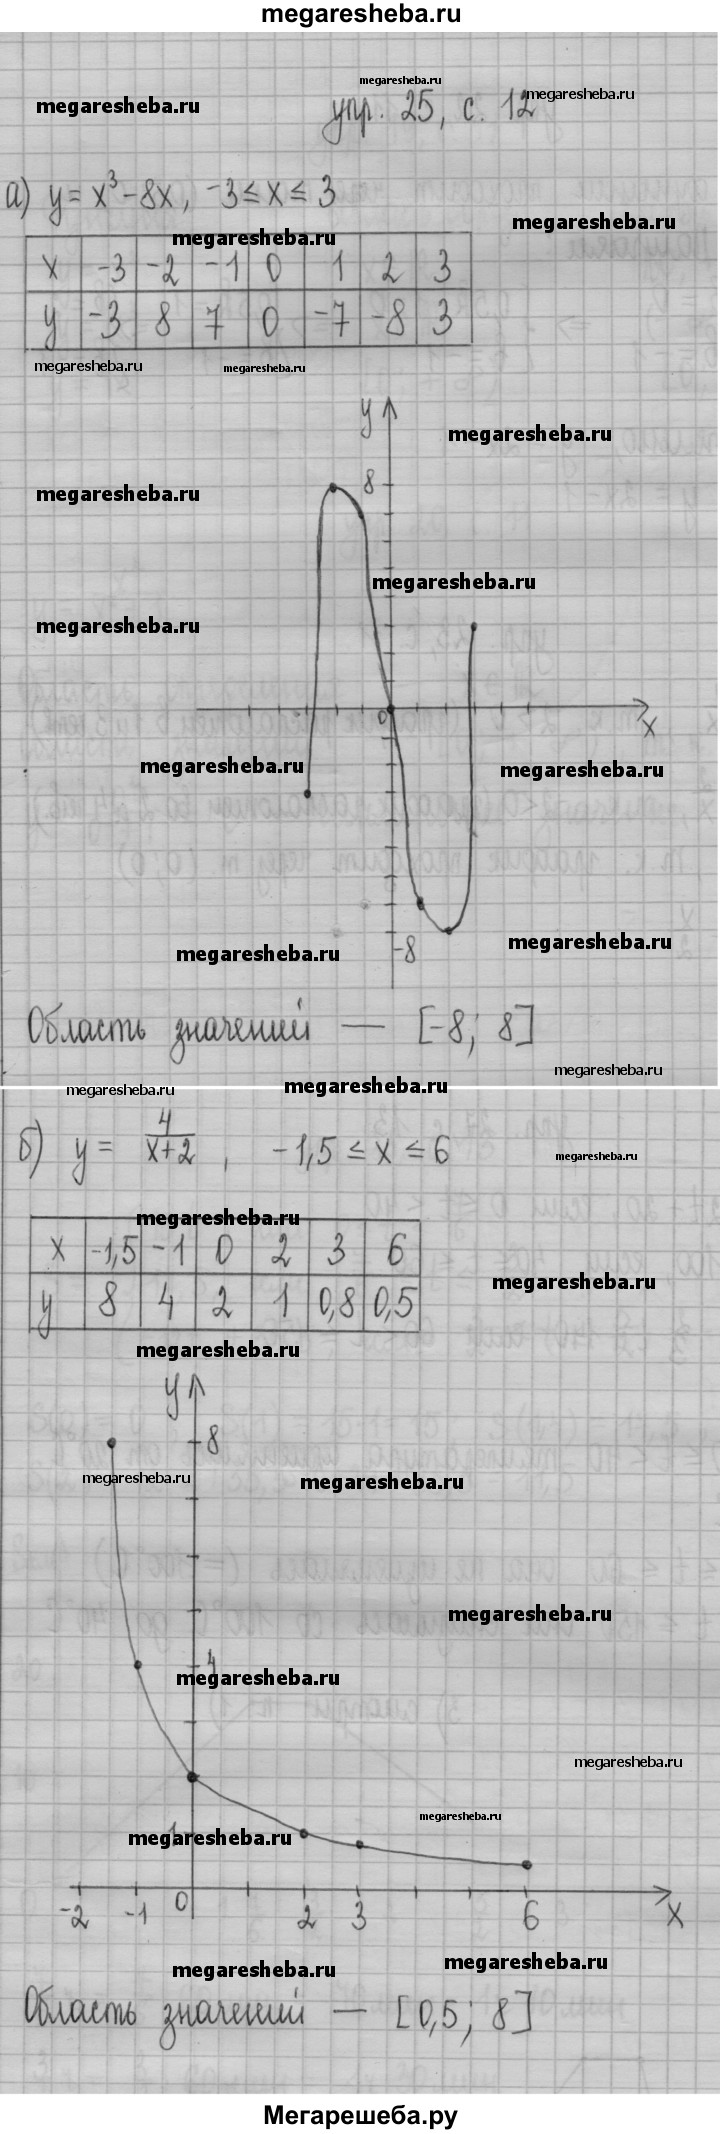 megaresheba.ru
megaresheba.ru
megaresheba.ru megaresheba.ru
упр. 25, с. 12
а) y = x³ - 8x, -3 ≤ x ≤ 3
megaresheba.ru
megaresheba.ru
x -3 -2 -1 0 1 2 3
y -3 8 7 0 -7 -8 3
megaresheba.ru megaresheba.ru
y
megaresheba.ru
8
megaresheba.ru
megaresheba.ru
megaresheba.ru
0 x
megaresheba.ru megaresheba.ru
-8
megaresheba.ru megaresheba.ru
Область значений — [-8; 8]
megaresheba.ru
megaresheba.ru megaresheba.ru
б) y = 4/(x+2), -1,5 ≤ x ≤ 6
megaresheba.ru
megaresheba.ru
x -1,5 -1 0 2 3 6
megaresheba.ru
y 8 4 2 1 0,8 0,5
megaresheba.ru
y
8
megaresheba.ru megaresheba.ru
megaresheba.ru
4
megaresheba.ru
megaresheba.ru
megaresheba.ru
1
megaresheba.ru
-2 -1 0 2 3 6 x
megaresheba.ru megaresheba.ru
Область значений — [0,5; 8]
Мегарешеба.ру